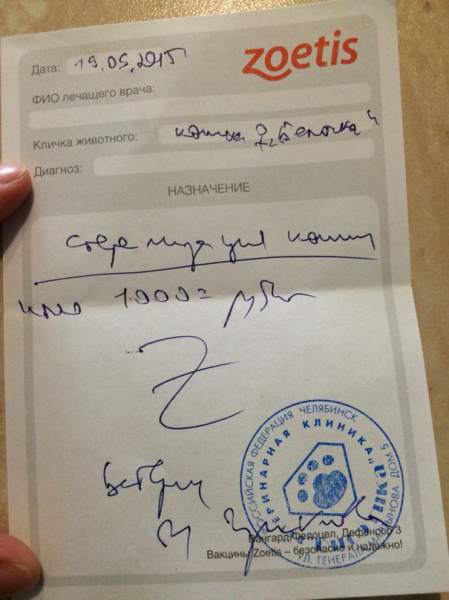 zoetis
Дата: 19.05.2015
ФИО лечащего врача:
Кличка животного: кошка ♀ „Белочка"
Диагноз:
НАЗНАЧЕНИЕ
стерилизация кошки
1000=
РОССИЙСКАЯ ФЕДЕРАЦИЯ ЧЕЛЯБИНСК
ВЕТЕРИНАРНАЯ КЛИНИКА
УЛ. ГЕНЕРАЛА МАРТЫНОВА ДОМ 5
Вангард, Фелоцел, Дефенсор 3
Вакцины Zoetis – безопасно и надежно!